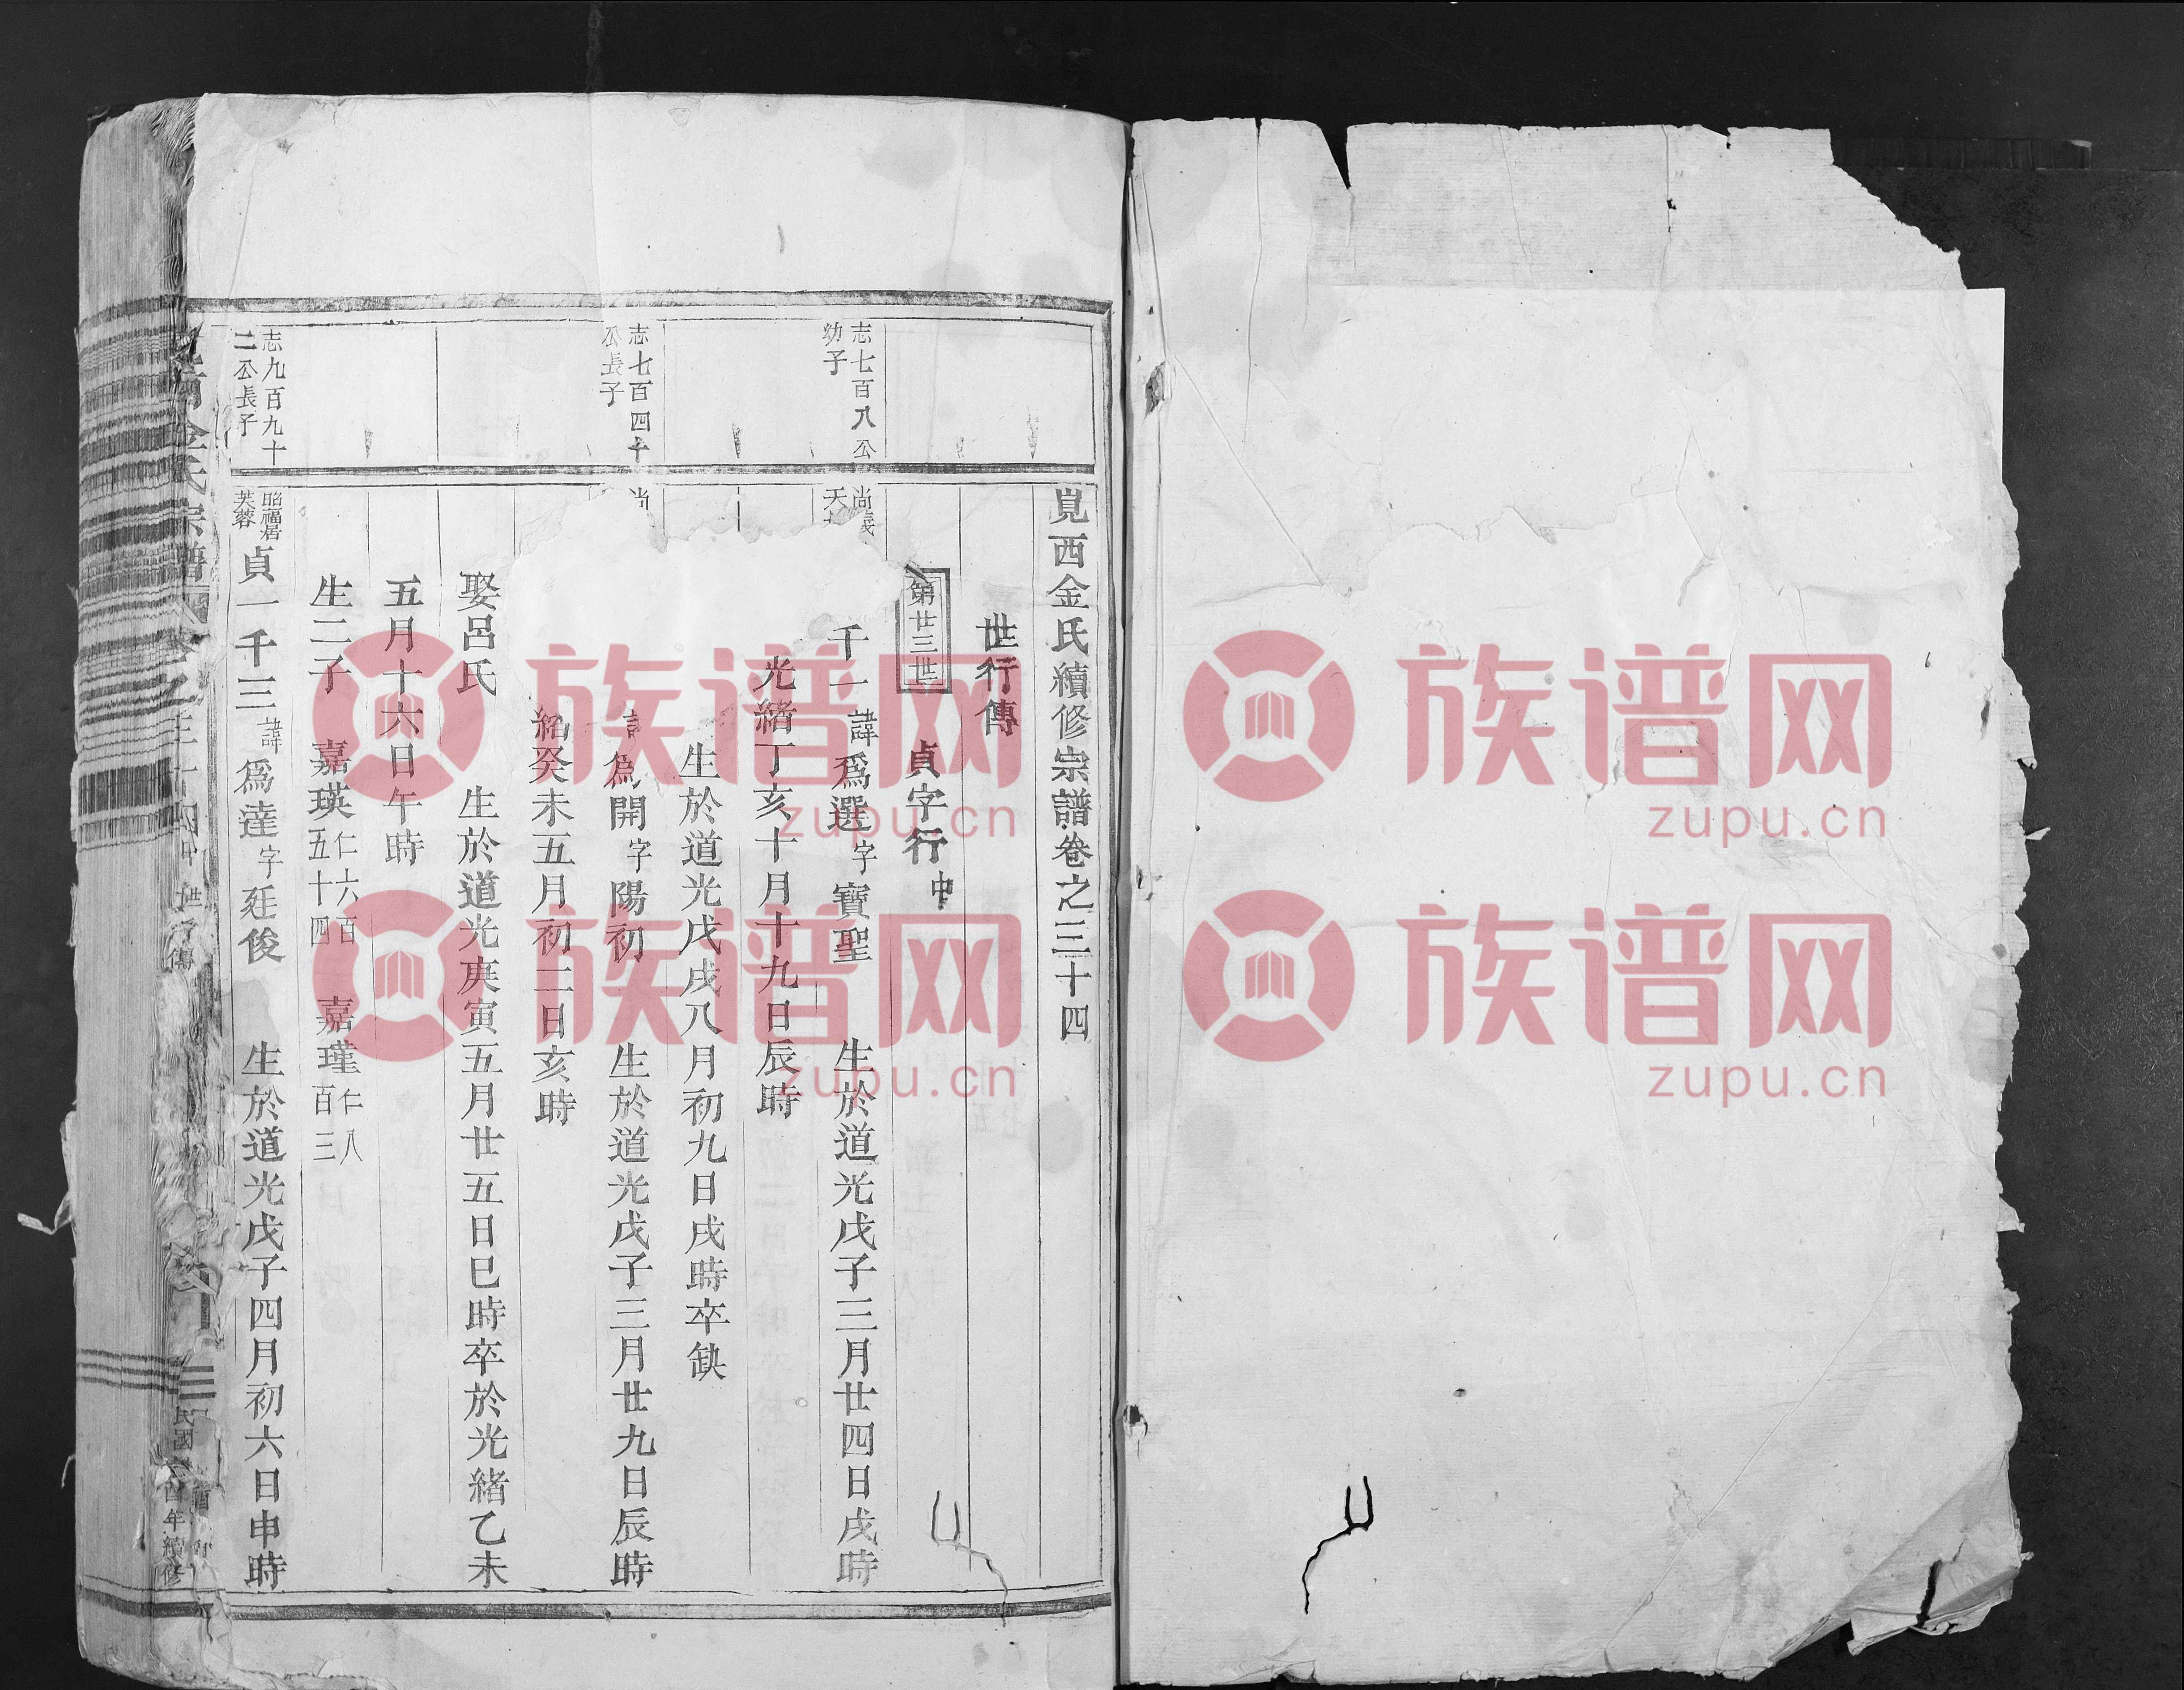 覓西金氏續修宗譜卷之三十四
世行傳
第廿三世 貞字行中
志七百八公幼子
尚義
天
千一諱爲選字寶聖 生於道光戊子三月廿四日戌時
光緒丁亥十月十九日辰時
生於道光戊戌八月初九日戌時卒缺
志七百四十公長子
尚
爲開字陽初 生於道光戊子三月廿九日辰時
緒癸未五月初二日亥時
娶呂氏 生於道光庚寅五月廿五日巳時卒於光緒乙未
五月十六日午時
生二子 嘉瑛仁六百五十四 嘉瑾仁八百三
志九百九十二公長子
昭福居芙蓉
貞一千三諱爲達字廷俊 生於道光戊子四月初六日申時
金氏宗譜 卷之三十四中 世行傳
民國 酉年續修
族谱网
zupu.cn
族谱网
zupu.cn
族谱网
zupu.cn
族谱网
zupu.cn